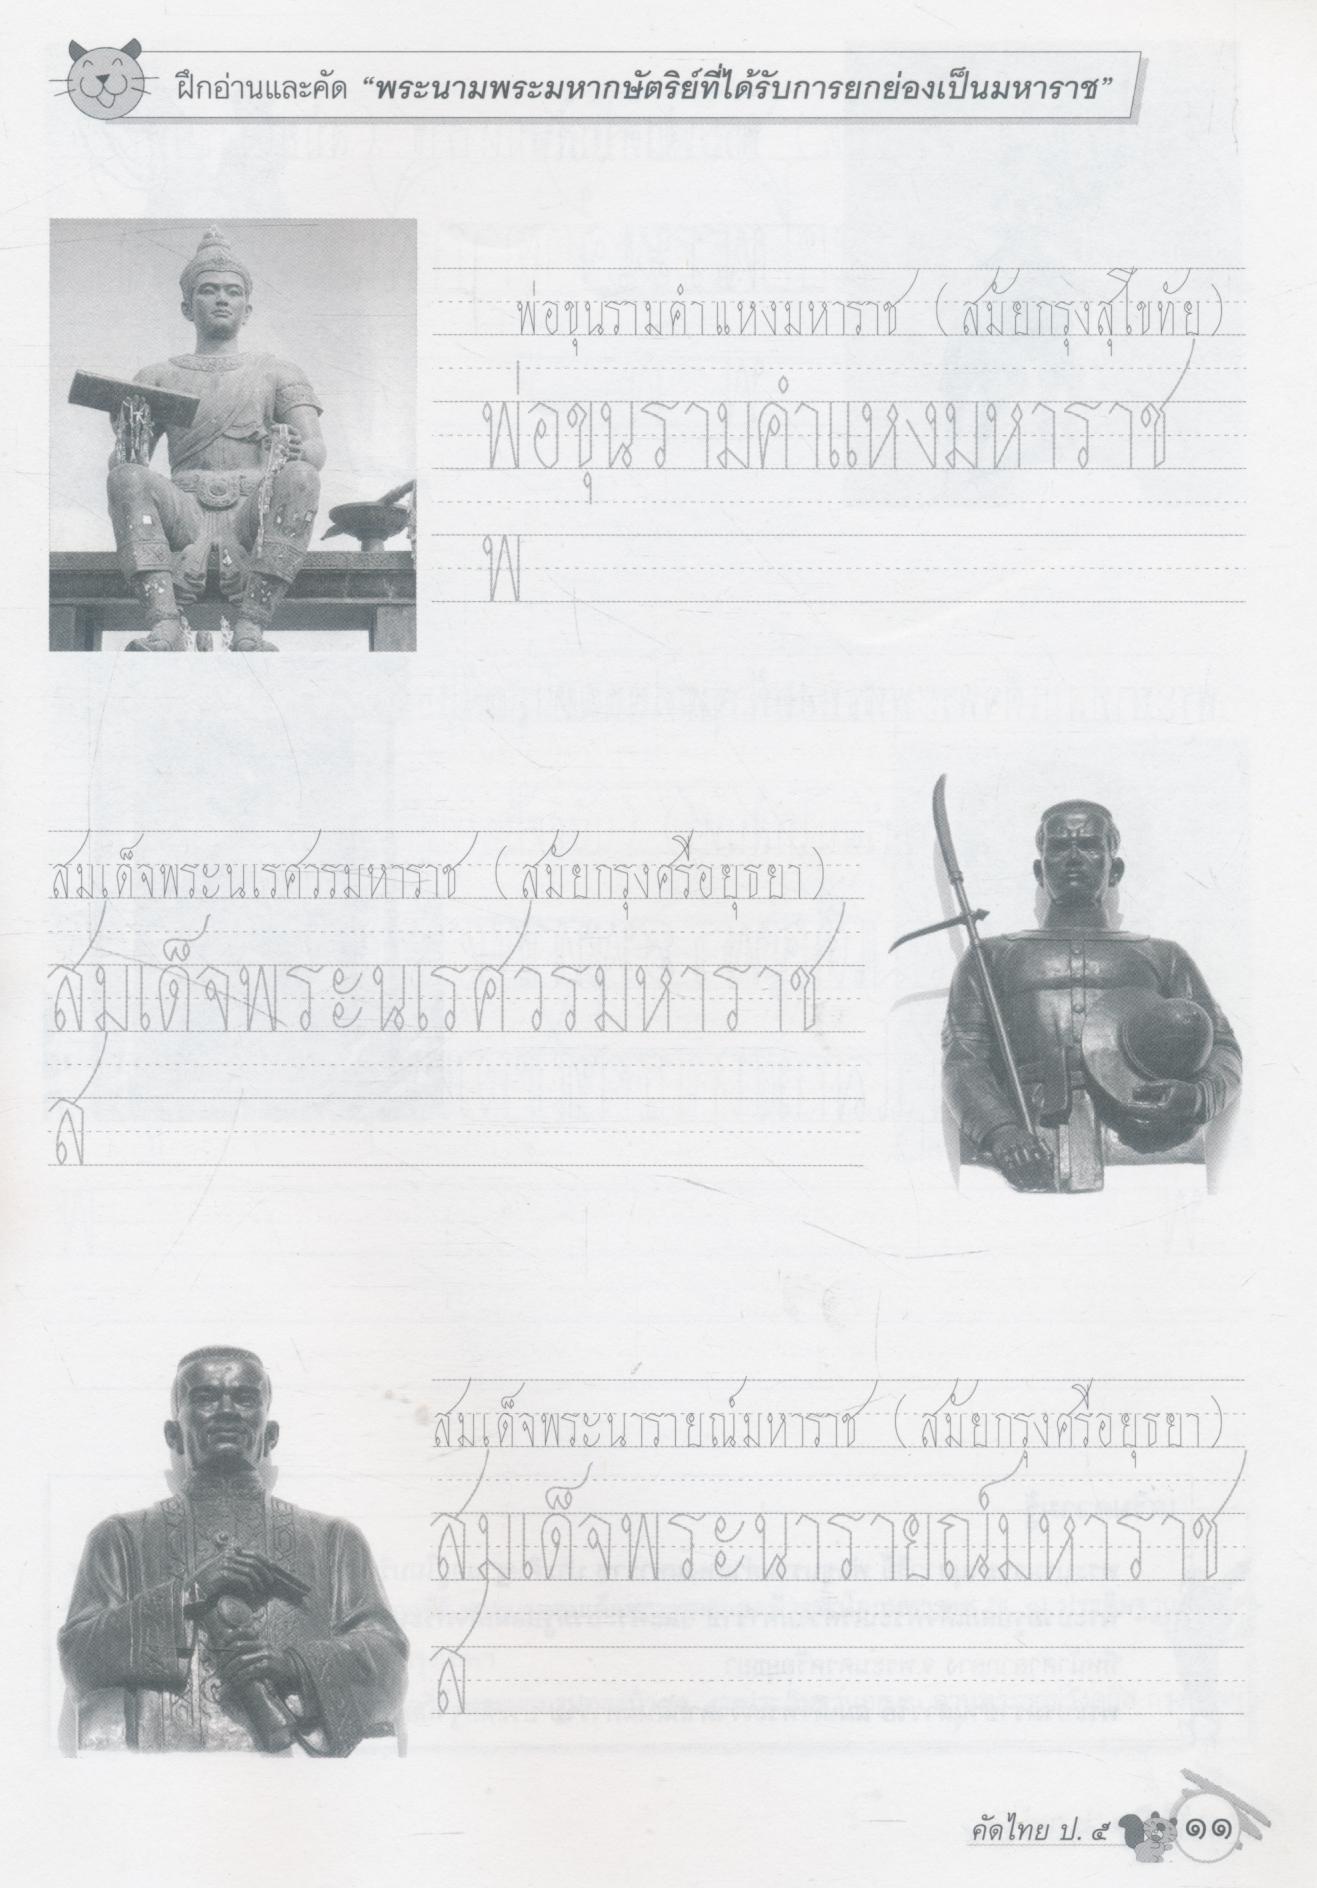 ฝึกอ่านและคัด “พระนามพระมหากษัตริย์ที่ได้รับการยกย่องเป็นมหาราช”
พ่อขุนรามคำแหงมหาราช (สมัยกรุงสุโขทัย)
พ่อขุนรามคำแหงมหาราช
พ
สมเด็จพระนเรศวรมหาราช (สมัยกรุงศรีอยุธยา)
สมเด็จพระนเรศวรมหาราช
ส
สมเด็จพระนารายณ์มหาราช (สมัยกรุงศรีอยุธยา)
สมเด็จพระนารายณ์มหาราช
ส
คัดไทย ป. ๕ ๑๑